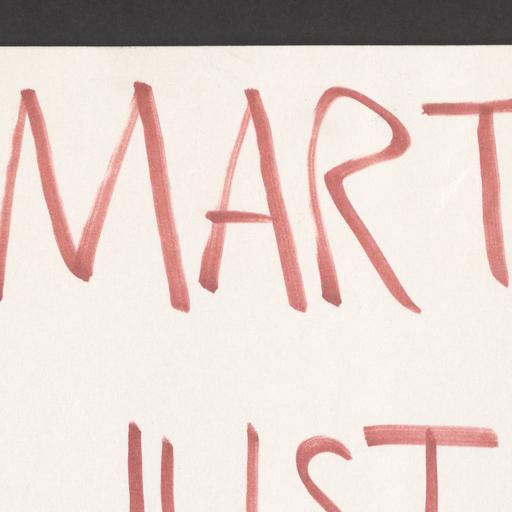 MART
JUST